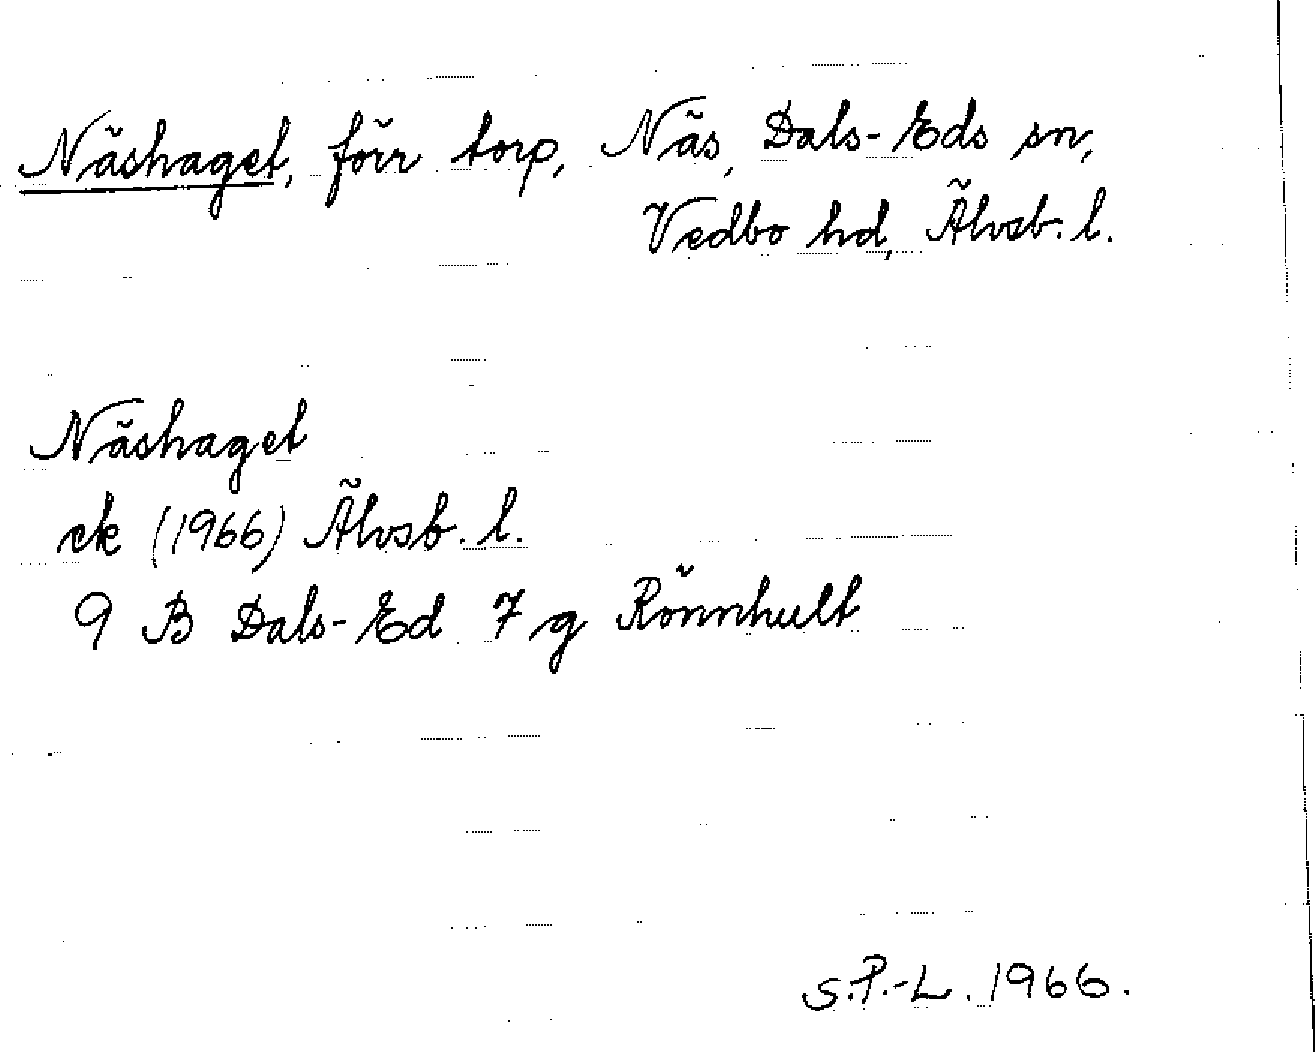 Näshaget, förr torp, Näs, Dals-Eds sn,
Vedbo hd, Älvsb. l.
Näshaget
ek (1966) Älvsb. l.
9 B Dals-Ed 7 g Rönnhult
S.P.-L. 1966.